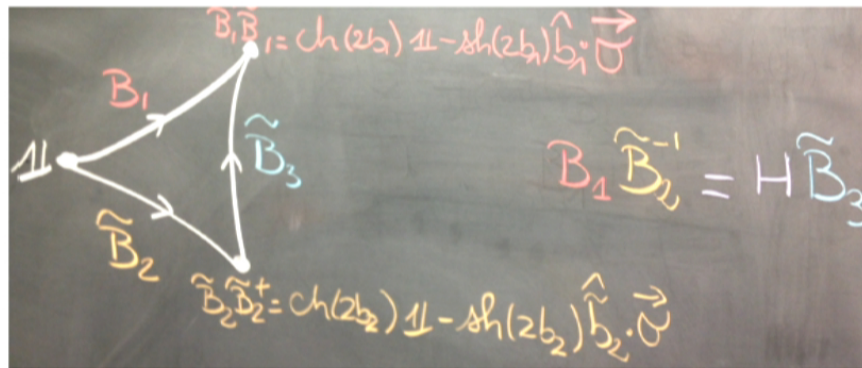 B̃₁B̃₁ = ch(2b₁) 𝟙 - sh(2b₁) b̂₁·σ⃗
B₁
𝟙
B̃₃
B₁ B̃₂⁻¹ = H B̃₃
B̃₂
B̃₂B̃₂⁺ = ch(2b₂) 𝟙 - sh(2b₂) b̃̂₂·σ⃗